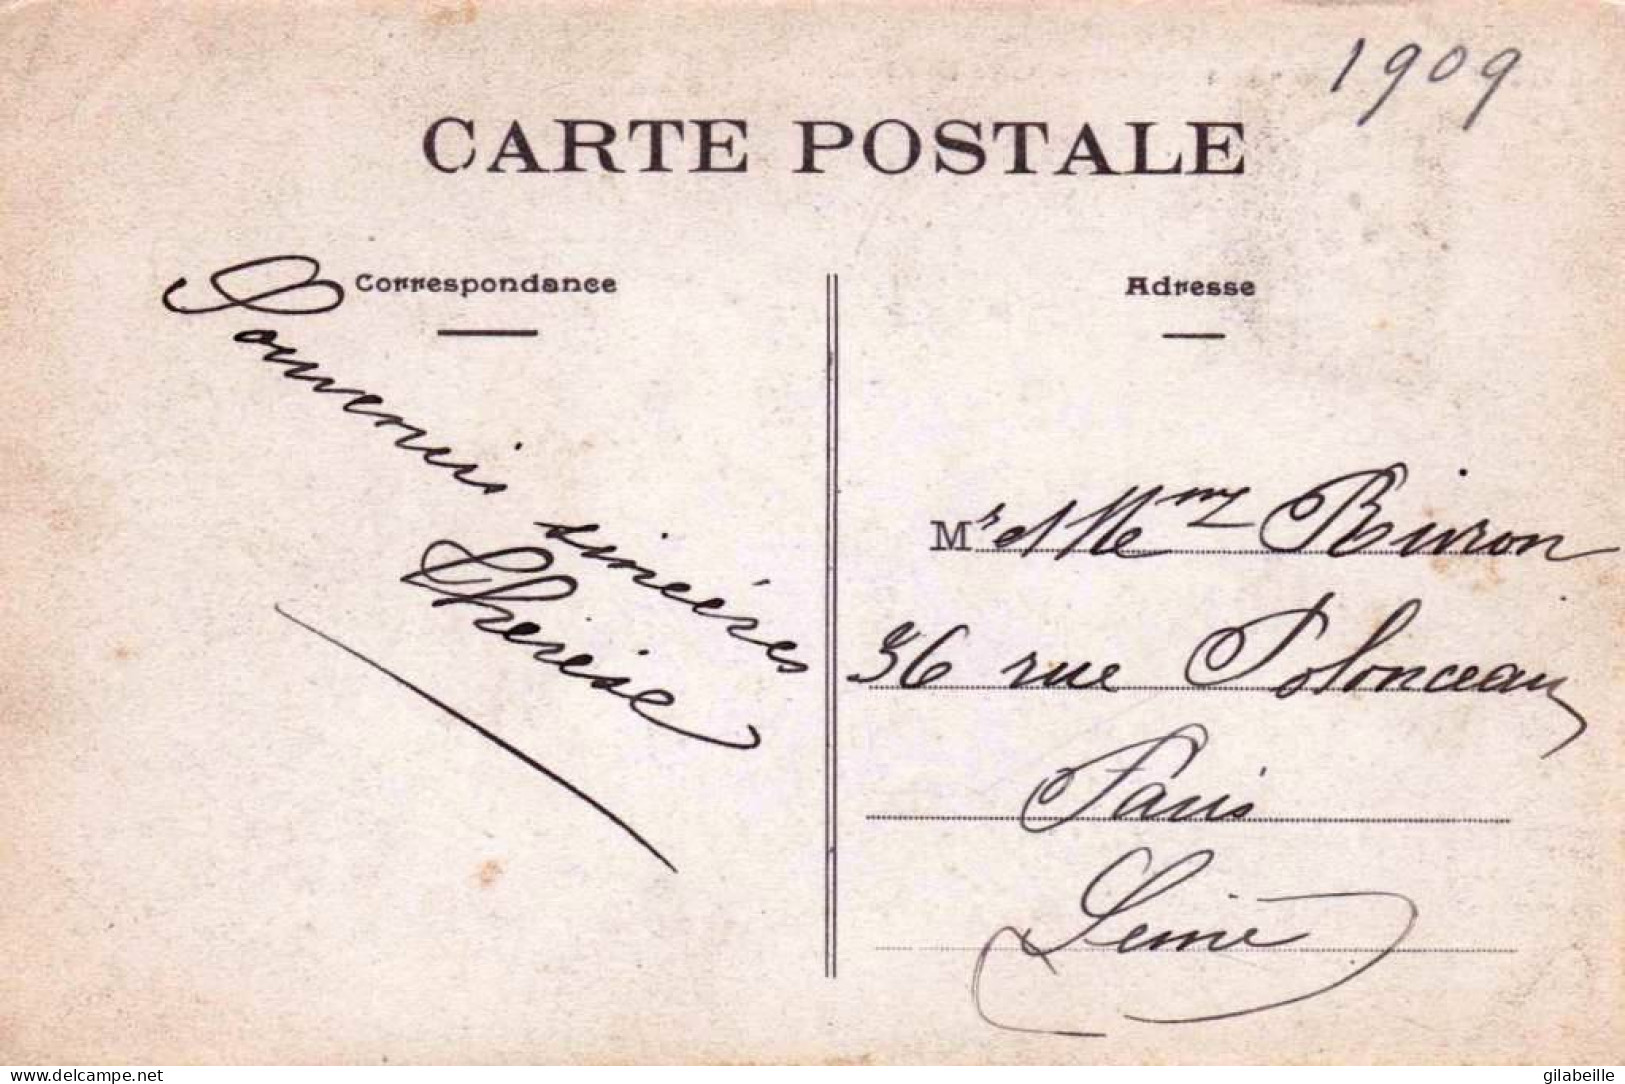 1909
CARTE POSTALE
Correspondance
Souvenirs sincères
Thérèse
Adresse
Mr et Mme Buron
36 rue Polonceau
Paris
Seine
www.delcampe.net
gilabeille